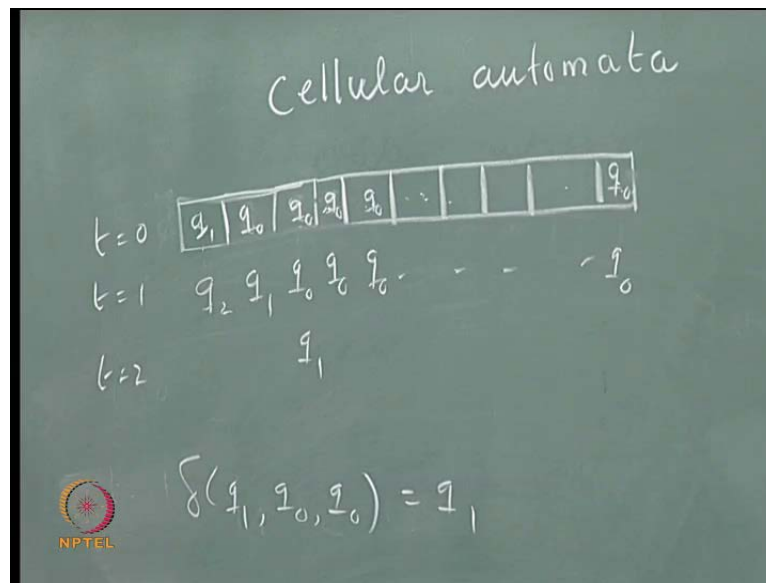 Cellular automata
t=0 q₁ q₀ q₀ q₀ q₀ . . . . q₀
t=1 q₂ q₁ q₀ q₀ q₀ . - - - - q₀
t=2 q₁
δ(q₁, q₀, q₀) = q₁
NPTEL